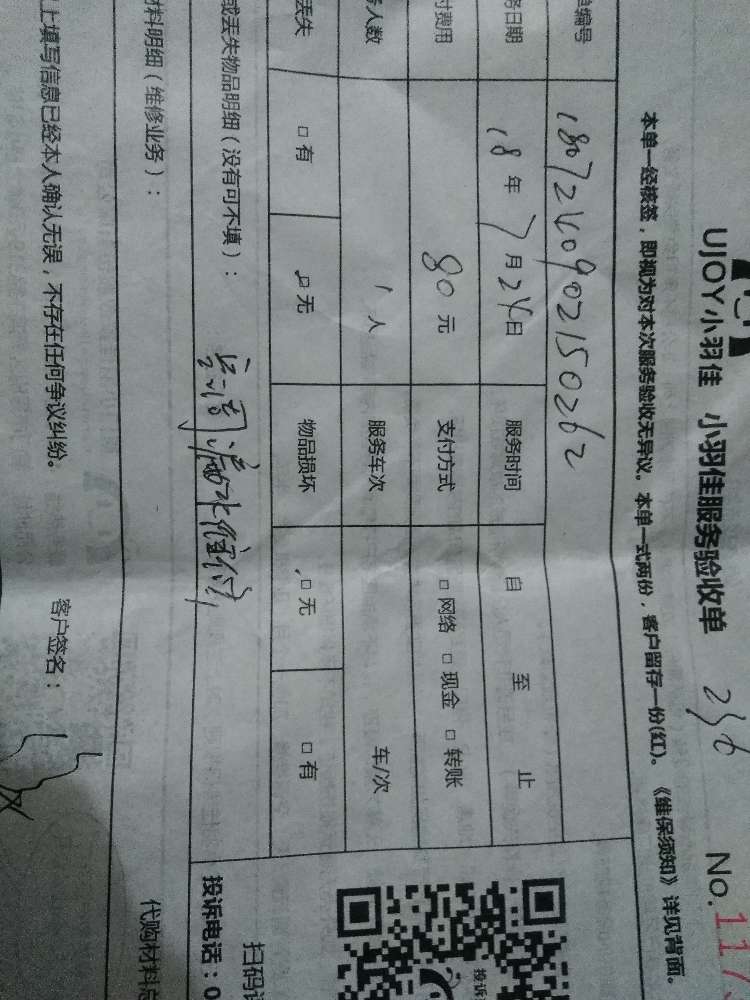 UJOY小羽佳 小羽佳服务验收单 No.117
本单一经核签，即视为对本次服务验收无异议。本单一式两份，客户留存一份(红)。《维保须知》详见背面。
编号 1807240902150262
务日期 18年7月24日 服务时间 自 至 止
付费用 80元 支付方式 □网络 □现金 □转账
人数 1人 服务车次 车/次
丢失 □有 □无 物品损坏 □无 □有
或丢失物品明细（没有可不填）：
漏水维修
投诉电话：0
材料明细（维修业务）：
代购材料总
上填写信息已经本人确认无误，不存在任何争议纠纷。 客户签名：
扫码
投诉